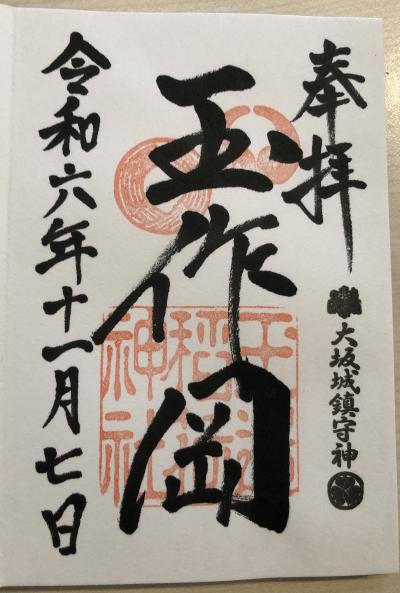 奉拝
大坂城鎮守神
玉作岡
玉造稲荷神社
令和六年十一月七日